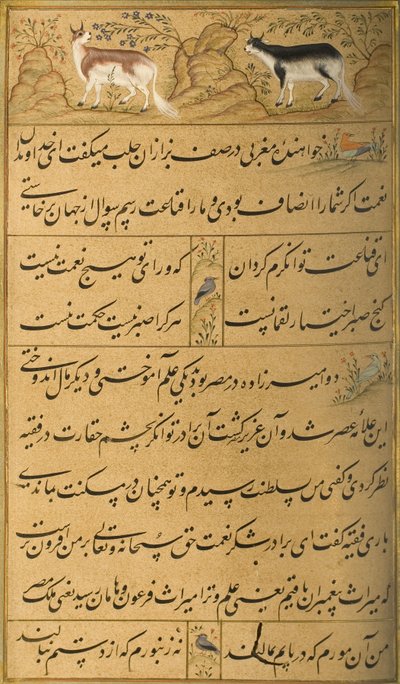 خواهنده مغربی در صف بزازان حلب میگفت ای خداوندان
نعمت اگر شمارا انصاف بودی و ما را قناعت رسم سوال از جهان برخاستی
ای قناعت توانگرم گردان که ورای تو هیچ نعمت نیست
کنج صبر اختیار لقمانست هر کرا صبر نیست حکمت نیست
دو امیرزاده در مصر بودند یکی علم آموختی و دیگر مال اندوختی
این علامه عصر شد و آن عزیز گشت آن برادر توانگر بچشم حقارت در فقیه
نظر کردی و گفتی من بسلطنت رسیدم و تو همچنان در مسکنت بماندی
باری فقیه گفت ای برادر شکر نعمت حق سبحانه و تعالی بر من افزون ترست
که میراث پیغمبران یافتم یعنی علم و ترا میراث فرعون و هامان رسید یعنی ملک مصر
من آن مورم که در پایم بمالند نه زنبورم که از دستم بنالند